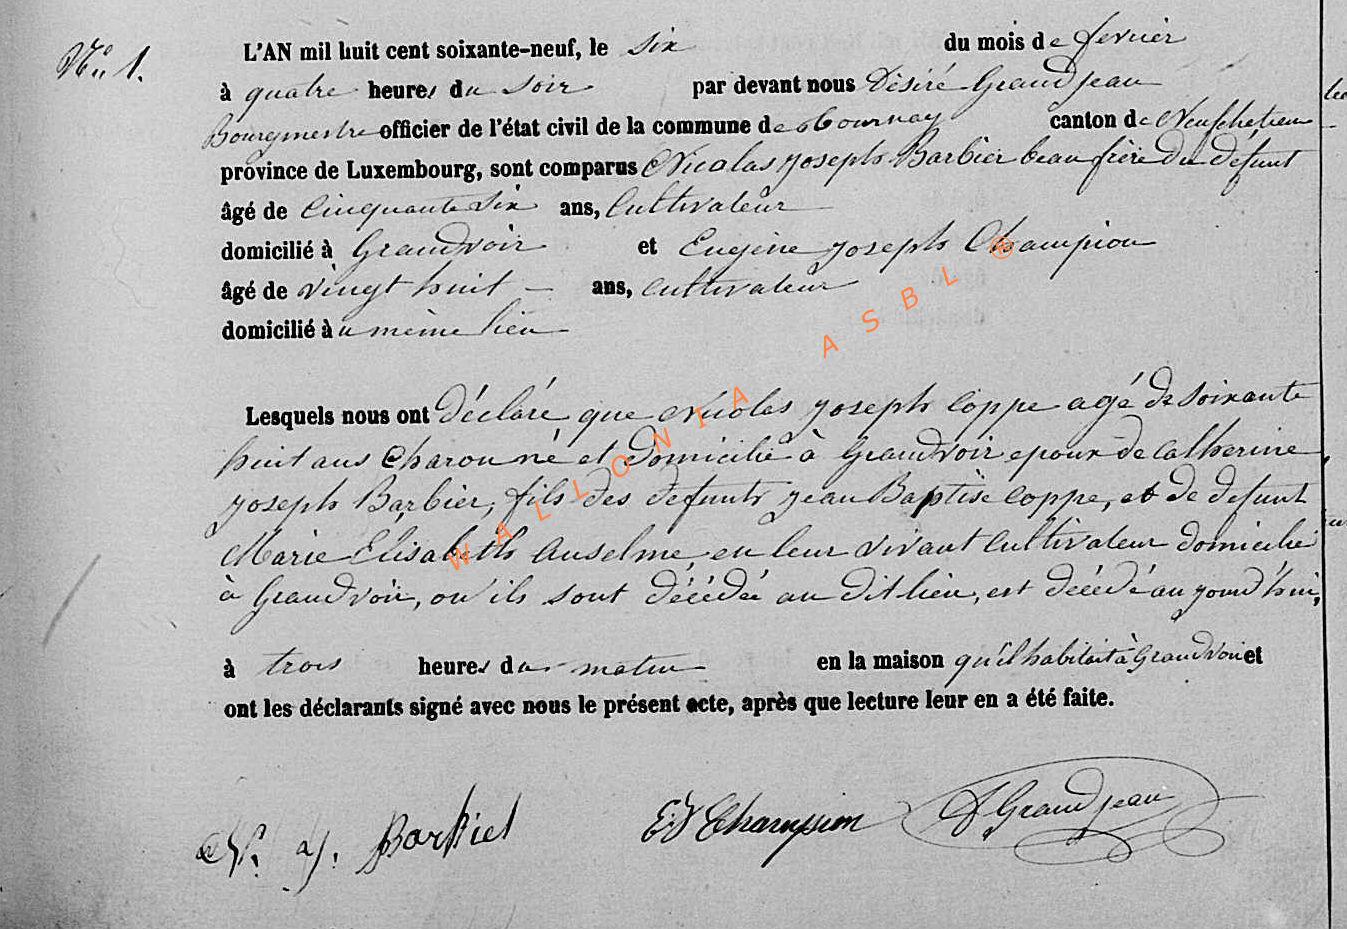 N° 1.
L'AN mil huit cent soixante-neuf, le six du mois de fevrier
à quatre heures du soir par devant nous Désiré Grandjean
Bourgmestre officier de l'état civil de la commune de tournay canton de Neufchateau
province de Luxembourg, sont comparus Nicolas Joseph Barbier beau frère du défunt
âgé de Cinquante Six ans, Cultivateur
domicilié à Grandvoir et Eugène Joseph Champion
âgé de vingt huit ans, cultivateur
domicilié àu même lieu
Lesquels nous ont déclaré que Nicolas Joseph Coppe agé de Soixante
huit ans Charon né et domicilié à Grandvoir epoux de Catherine
Joseph Barbier, fils des defunts Jean Baptise Coppe, et de defunt
Marie Elisabeth Anselme, en leur vivant Cultivateur domicilié
à Grandvoir, ou ils sont décédée au dit lieu, est décédé au jourd'hui,
à trois heures du matin en la maison qu'il habitait à Grandvoir et
ont les déclarants signé avec nous le présent acte, après que lecture leur en a été faite.
N. J. Barbier EJ Champion D Grandjean
WALLONIA ASBL ®